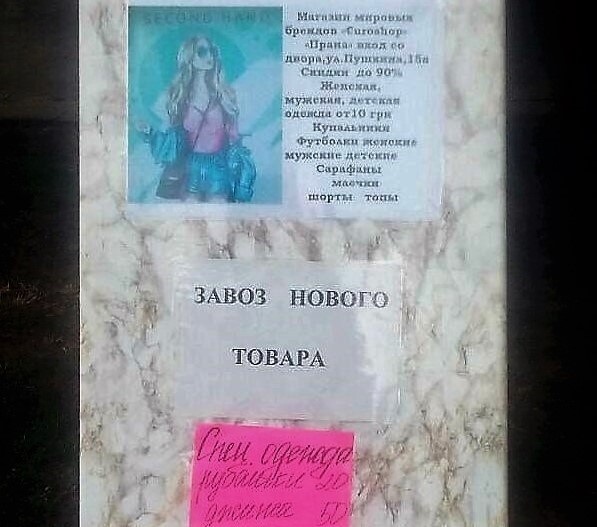 SECOND HAND
Магазин мировых
брендов «Curoshop»
«Прана» вход со
двора,ул.Пушкина,18а
Скидки до 90%
Женская,
мужская, детская
одежда от10 грн
Купальники
Футболки женские
мужские детские
Сарафаны
маечки
шорты топы
ЗАВОЗ НОВОГО
ТОВАРА
Спец. одежда
рубашки 20
джинса 50